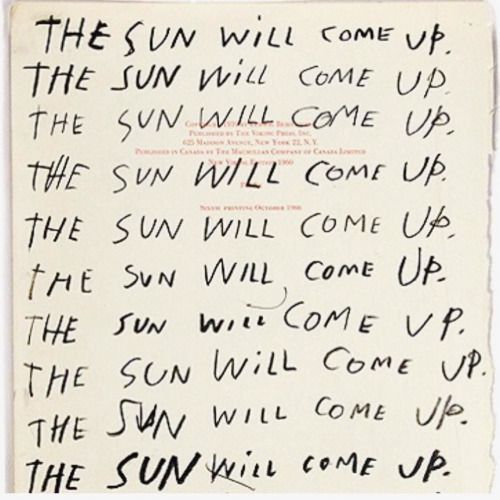 THE SUN WiLL COME UP.
THE SUN WiLL COME UP.
THE SUN WILL COME UP.
PUBLISHED BY THE VIKING PRESS, INC.
625 MADISON AVENUE, NEW YORK 22, N.Y.
PUBLISHED IN CANADA BY THE MACMILLAN COMPANY OF CANADA LIMITED
THE SUN WILL COME UP.
SIXTH PRINTING OCTOBER 1966
THE SUN WILL COME UP.
THE SUN WILL COME UP.
THE SUN WiLL COME UP.
THE SUN WiLL COME UP.
THE SUN WiLL COME UP.
THE SUN WiLL COME UP.